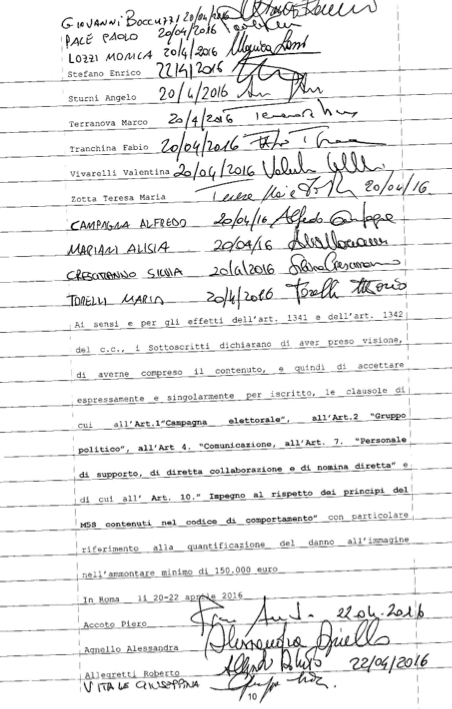 GIOVANNI BOCCUZZI 20/04/2016
PALÉ PAOLO 20/04/2016
LOZZI MONICA 20/4/2016 Monica Lozzi
Stefano Enrico 22/4/2016
Sturni Angelo 20/4/2016
Terranova Marco 20/4/2016
Tranchina Fabio 20/04/2016
Vivarelli Valentina 20/04/2016
Zotta Teresa Maria 20/04/16
CAMPAGNA ALFREDO 20/04/16 Alfredo
MARIANI ALISIA 20/04/16
SILVIA 20/4/2016
TORELLI MARIO 20/4/2016 Torelli Mario
Ai sensi e per gli effetti dell'art. 1341 e dell'art. 1342
del c.c., i Sottoscritti dichiarano di aver preso visione,
di averne compreso il contenuto, e quindi di accettare
espressamente e singolarmente per iscritto, le clausole di
cui all'Art.1"Campagna elettorale", all'Art.2 "Gruppo
politico", all'Art 4. "Comunicazione, all'Art. 7. "Personale
di supporto, di diretta collaborazione e di nomina diretta" e
di cui all' Art. 10." Impegno al rispetto dei principi del
M5S contenuti nel codice di comportamento" con particolare
riferimento alla quantificazione del danno all'immagine
nell'ammontare minimo di 150.000 euro
In Roma li 20-22 aprile 2016
Accoto Piero 22.04.2016
Agnello Alessandra Alessandra Agnello
Allegretti Roberto 22/04/2016
VITALE GIUSEPPINA
10